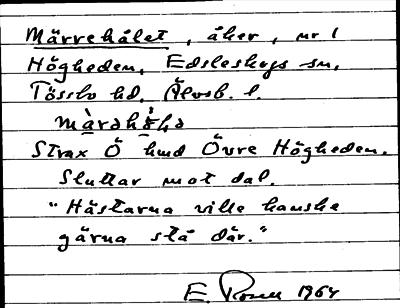 Märrehålet, åker, nr 1
Högheden, Edsleskogs sn,
Tössbo hd, Älvsb. l.
Strax Ö hmd Övre Högheden.
Sluttar mot dal.
"Hästarna ville kanske
gärna stå där."
E. 1964